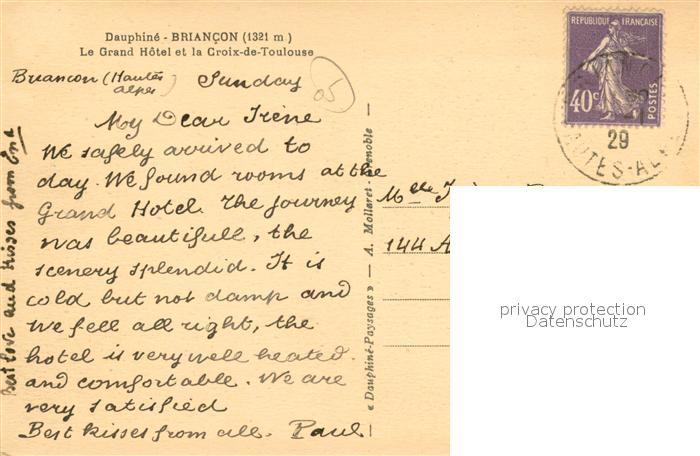 Dauphiné - BRIANÇON (1321 m)
Le Grand Hôtel et la Croix-de-Toulouse
Briancon (Hautes
alpes)
Sunday
05
My Dear Irène
We safely arrived to
day. We found rooms at the
Grand Hotel. The journey
was beautifull, the
scenery splendid. It is
cold but not damp and
we fell all right, the
hotel is very well heated.
and comfortable. We are
very satisfied
Best kisses from all. Paul
Best love and kisses from
« Dauphiné-Paysages » — A. Mollaret - Grenoble —
Mlle
144 A
REPUBLIQUE FRANÇAISE
40c
POSTES
29
HAUTES-ALPES
privacy protection
Datenschutz